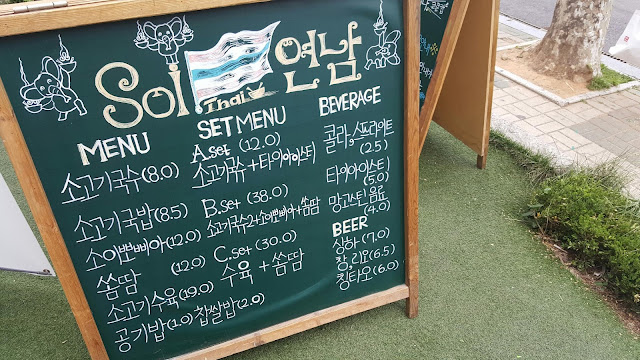 Soi 연남
Thai
MENU
소고기국수(8.0)
소고기국밥(8.5)
소이뽀삐아(12.0)
쏨땀 (12.0)
소고기수육(19.0)
공기밥(1.0) 찹쌀밥(2.0)
SET MENU
A.set (12.0)
소고기국수+타이아이스티
B.set (38.0)
소고기국수2+소이뽀삐아+쏨땀
C.set (30.0)
수육+쏨땀
BEVERAGE
콜라,스프라이트
(2.5)
타이아이스티
(5.0)
망고스틴 음료
(4.0)
BEER
싱하(7.0)
창,리오(6.5)
칭타오(6.0)